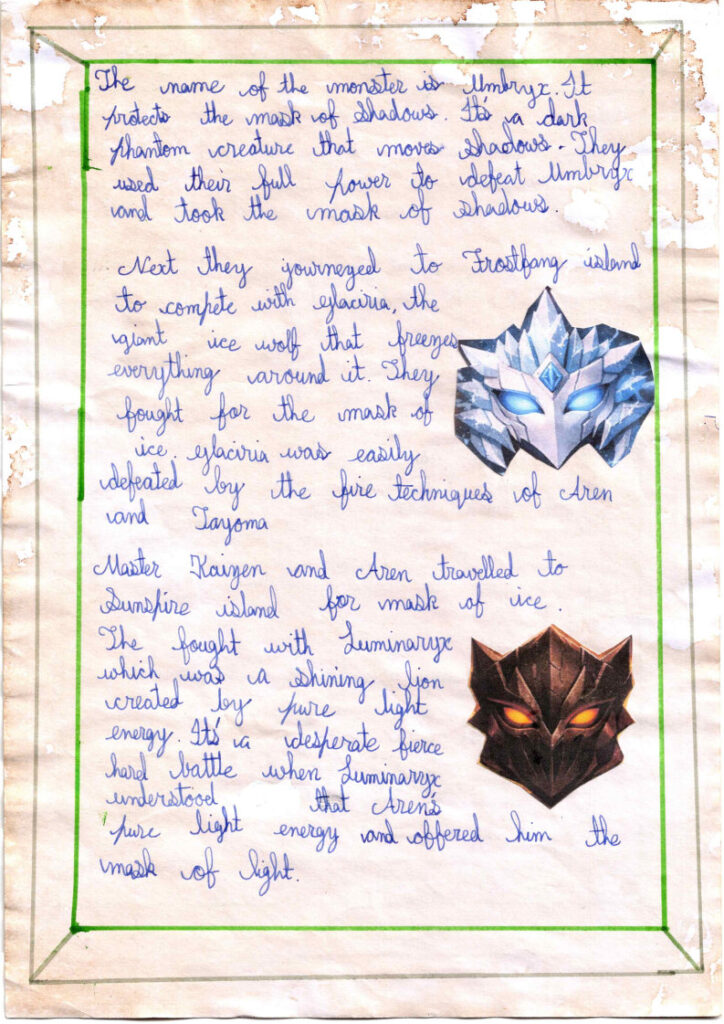 The name of the monster is Umbryx. It
protects the mask of shadows. It's a dark
phantom creature that moves shadows. They
used their full power to defeat Umbryx
and took the mask of shadows.
Next they journeyed to Frostfang island
to compete with glaciria, the
giant ice wolf that freezes
everything around it. They
fought for the mask of
ice. glaciria was easily
defeated by the fire techniques of Aren
and Tayoma
Master Kaizen and Aren travelled to
Sunspire island for mask of ice.
The fought with Luminaryx
which was a shining lion
created by pure light
energy. It's a desperate fierce
hard battle when Luminaryx
understood that Aren's
pure light energy and offered him the
mask of light.